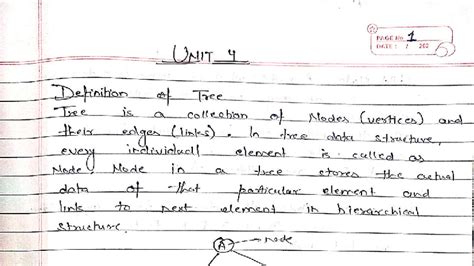 PAGE No. 1
DATE: / / 202
UNIT 4
Definition of Tree
Tree is a collection of Nodes (vertices) and
their edges (links). In tree data structure,
every individuall element is called as
Node. Node in a tree stores the actual
data of that particular element and
link to next element in hierarchical
structure.
A node